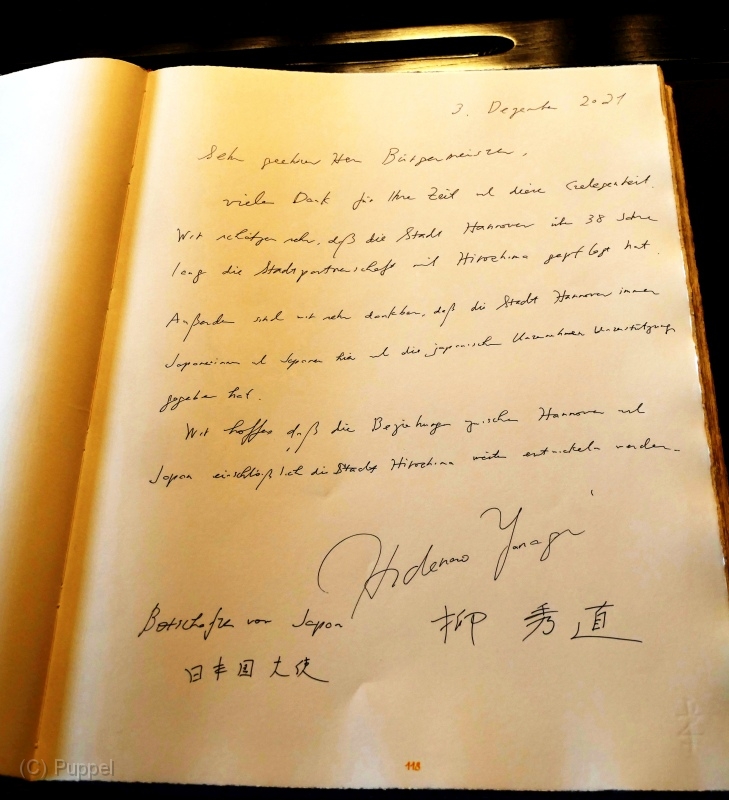 3. Dezember 2021
Sehr geehrter Herr Bürgermeister,
vielen Dank für Ihre Zeit und diese Gelegenheit.
Wir schätzen sehr, daß die Stadt Hannover über 38 Jahre
lang die Stadtpartnerschaft mit Hiroshima gepflegt hat.
Außerdem sind wir sehr dankbar, daß die Stadt Hannover immer
Japanerinnen und Japaner hier und die japanischen Unternehmen Unterstützung
gegeben hat.
Wir hoffen, daß die Beziehungen zwischen Hannover und
Japan einschließlich die Stadt Hiroshima weiter entwickeln werden.
Hidenao Yanagi
Botschafter von Japan
柳 秀直
日本国大使
118
(C) Puppel